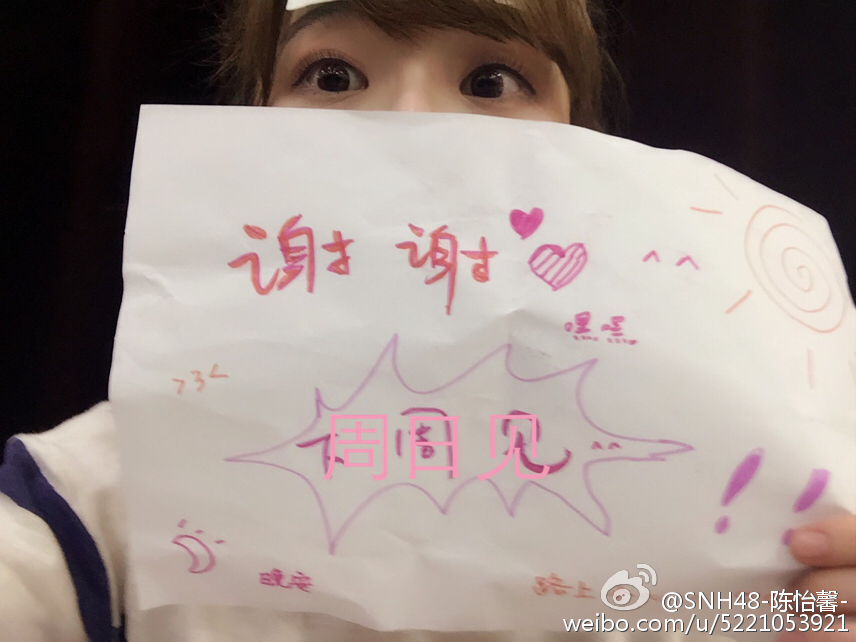 谢谢
^ ^
嘿嘿
>3<
下周见 ^^
周日见
!!
晚安
路上
@SNH48-陈怡馨-
weibo.com/u/5221053921